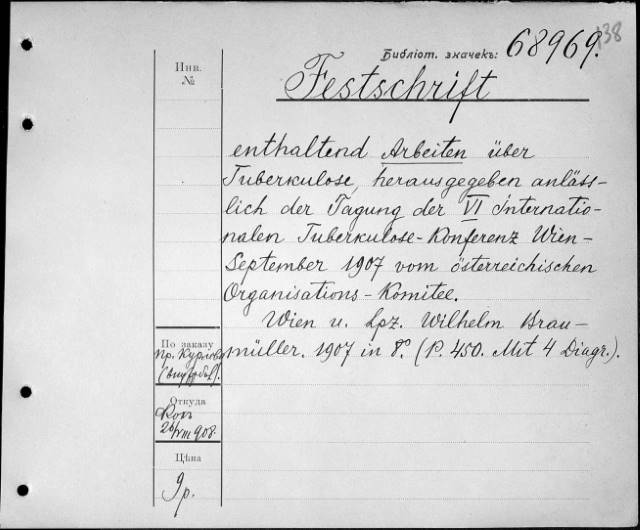 138
Библіот. значекъ: 68969.
Инв.
№
Festschrift
enthaltend Arbeiten über
Tuberkulose, herausgegeben anläss-
lich der Tagung der VI Internatio-
nalen Tuberkulose-Konferenz Wien-
September 1907 vom österreichischen
Organisations-Komitee.
Wien u. Lpz. Wilhelm Brau-
müller. 1907 in 8°. (P. 450. Mit 4 Diagr.).
По заказу
пр. Курлова
Откуда
26/VIII 908.
Цѣна
9 р.